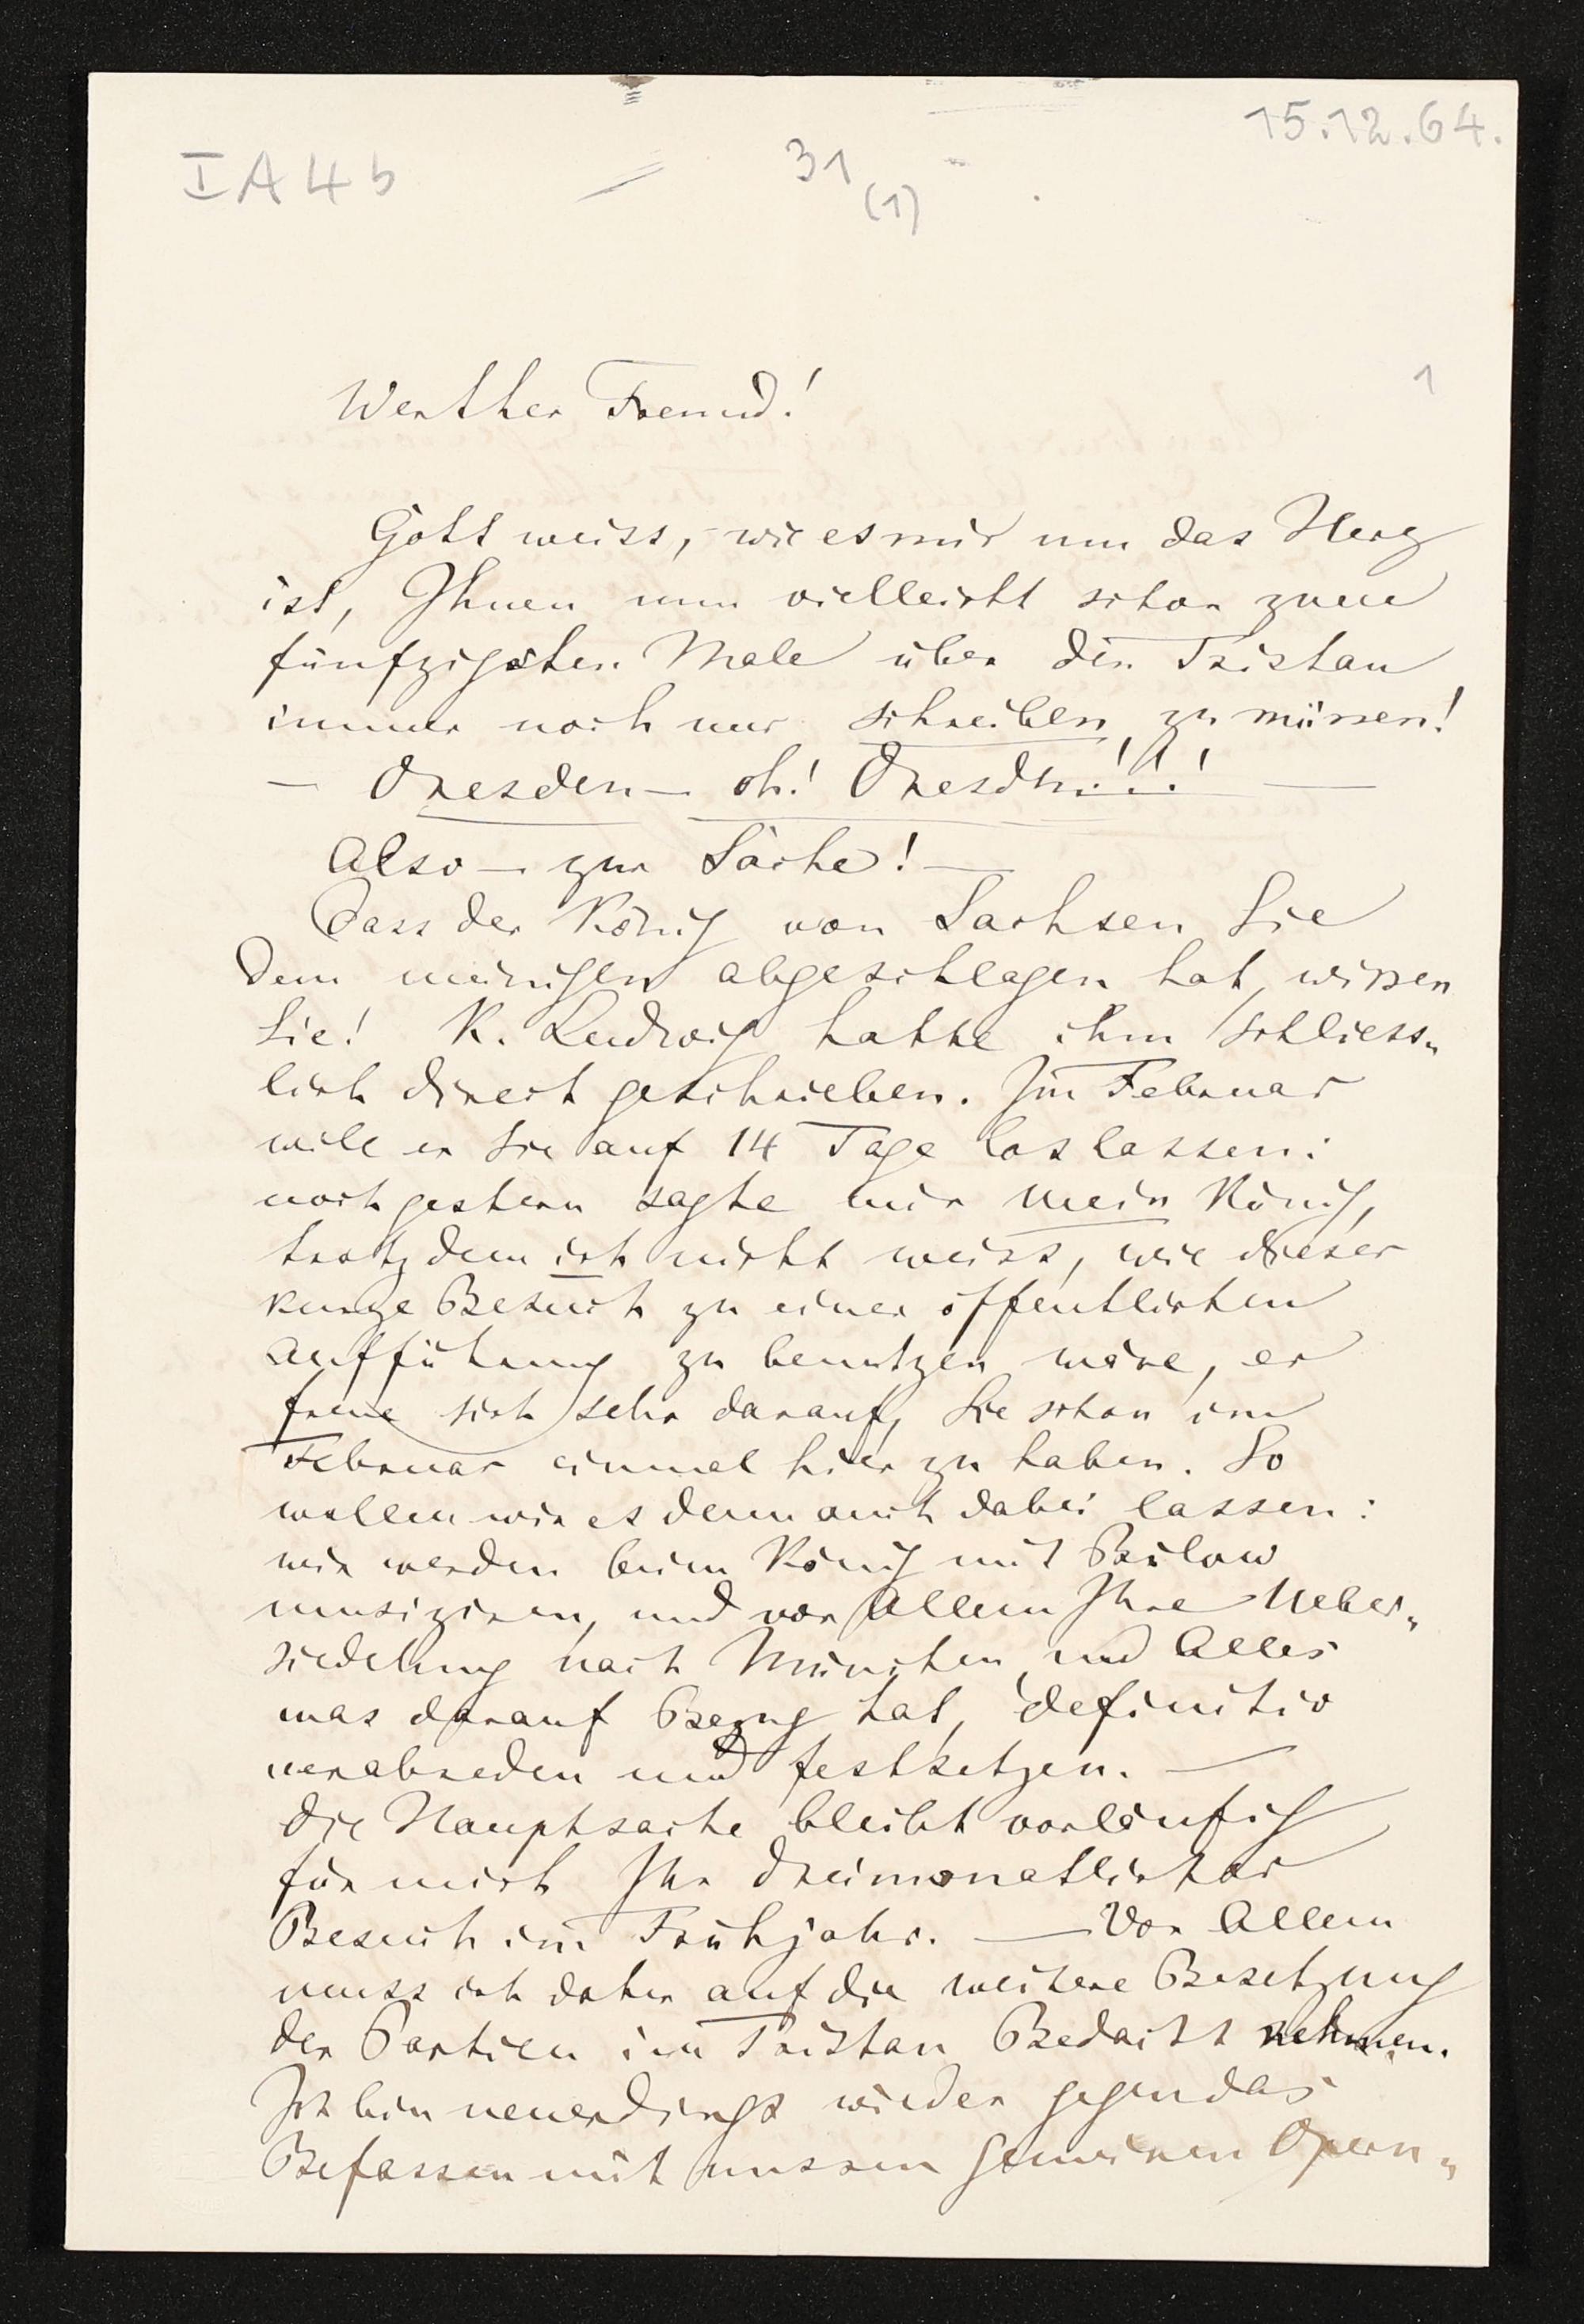 15.12.64.
IA4b
31
(1)
1
Werther Freund!
Gott weiss, wie es mir um das Herz
ist, Ihnen nun vielleicht schon zum
fünfzigsten Male über den Tristan
immer noch nur schreiben zu müssen!
— Dresden — oh! Dresden!!! —
Also — zur Sache! —
Dass der König von Sachsen Sie
dem meinigen abgeschlagen hat, wissen
Sie! K. Ludwig hatte ihm schliess-
lich direct geschrieben. Im Februar
will er Sie auf 14 Tage loslassen:
noch gestern sagte mir mein König,
trotzdem ich nicht weiss, wie dieser
kurze Besuch zu einer öffentlichen
Aufführung zu benutzen wäre, er
freue sich sehr darauf, Sie schon im
Februar einmal hier zu haben. So
wollen wir es denn auch dabei lassen:
wir werden beim König mit Bülow
musiziren, und vor Allem Ihre Ueber-
siedelung nach München, und Alles
was darauf Bezug hat, definitiv
verabreden und festsetzen. —
Die Hauptsache bleibt vorläufig
für mich Ihr dreimonatlicher
Besuch im Frühjahr. — Vor Allem
muss ich daher auf die weitere Besetzung
der Partien im Tristan Bedacht nehmen.
Ich bin neuerdings wieder gegen das
Befassen mit unsren gemeinen Opern-